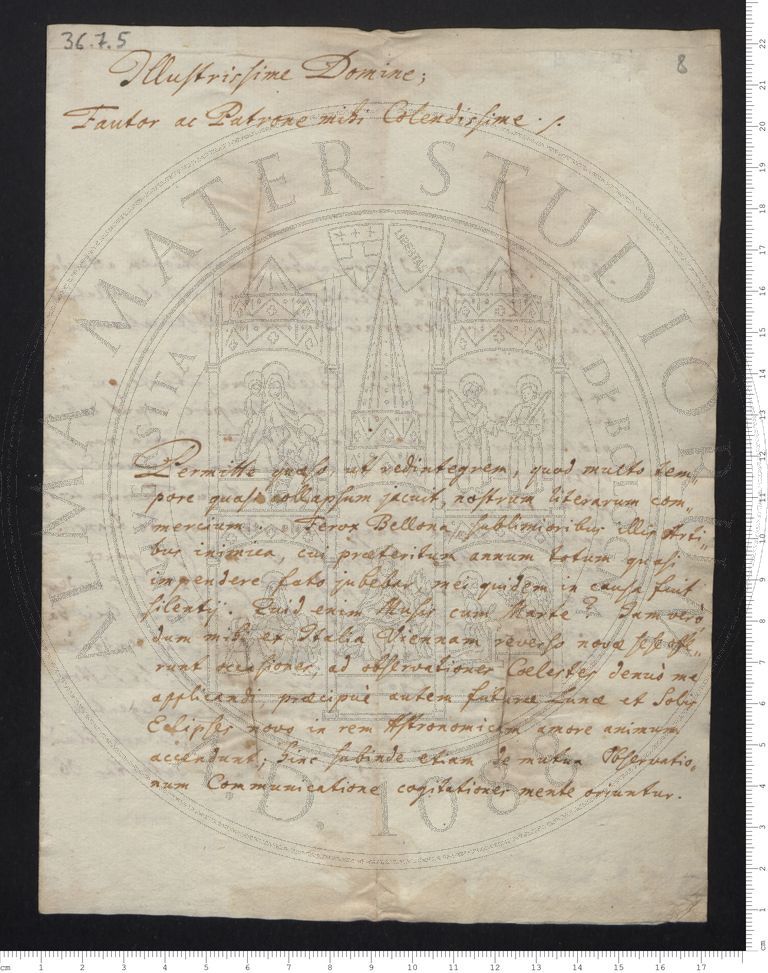 36.7.5
8
Illustrissime Domine;
Fautor ac Patrone mihi Colendissime.
Permitte quæso, ut redintegrem, quod multo tem„
pore quasi collapsum jacuit, nostrum literarum com„
mercium. Ferox Bellona, sublimioribus illis Arti„
bus inimica, cui præteritum annum totum quasi
impendere fato jubebar, mei quidem in causa fuit
silentij. Quid enim Musis cum Marte? Jam verò
dum mihi et Italia Viennam reverso novæ sese offe„
runt occasiones, ad observationes Coelestes denuò me
applicandi, præcipuè autem futuræ Lunæ et Solis
Eclipses novo in rem Astronomicam amore animum
accendunt; hinc subinde etiam de mutua Observatio„
num Communicatione cogitationes mente oriuntur.
ALMA MATER STUDIORUM
A.D. 1088
LIBERTAS